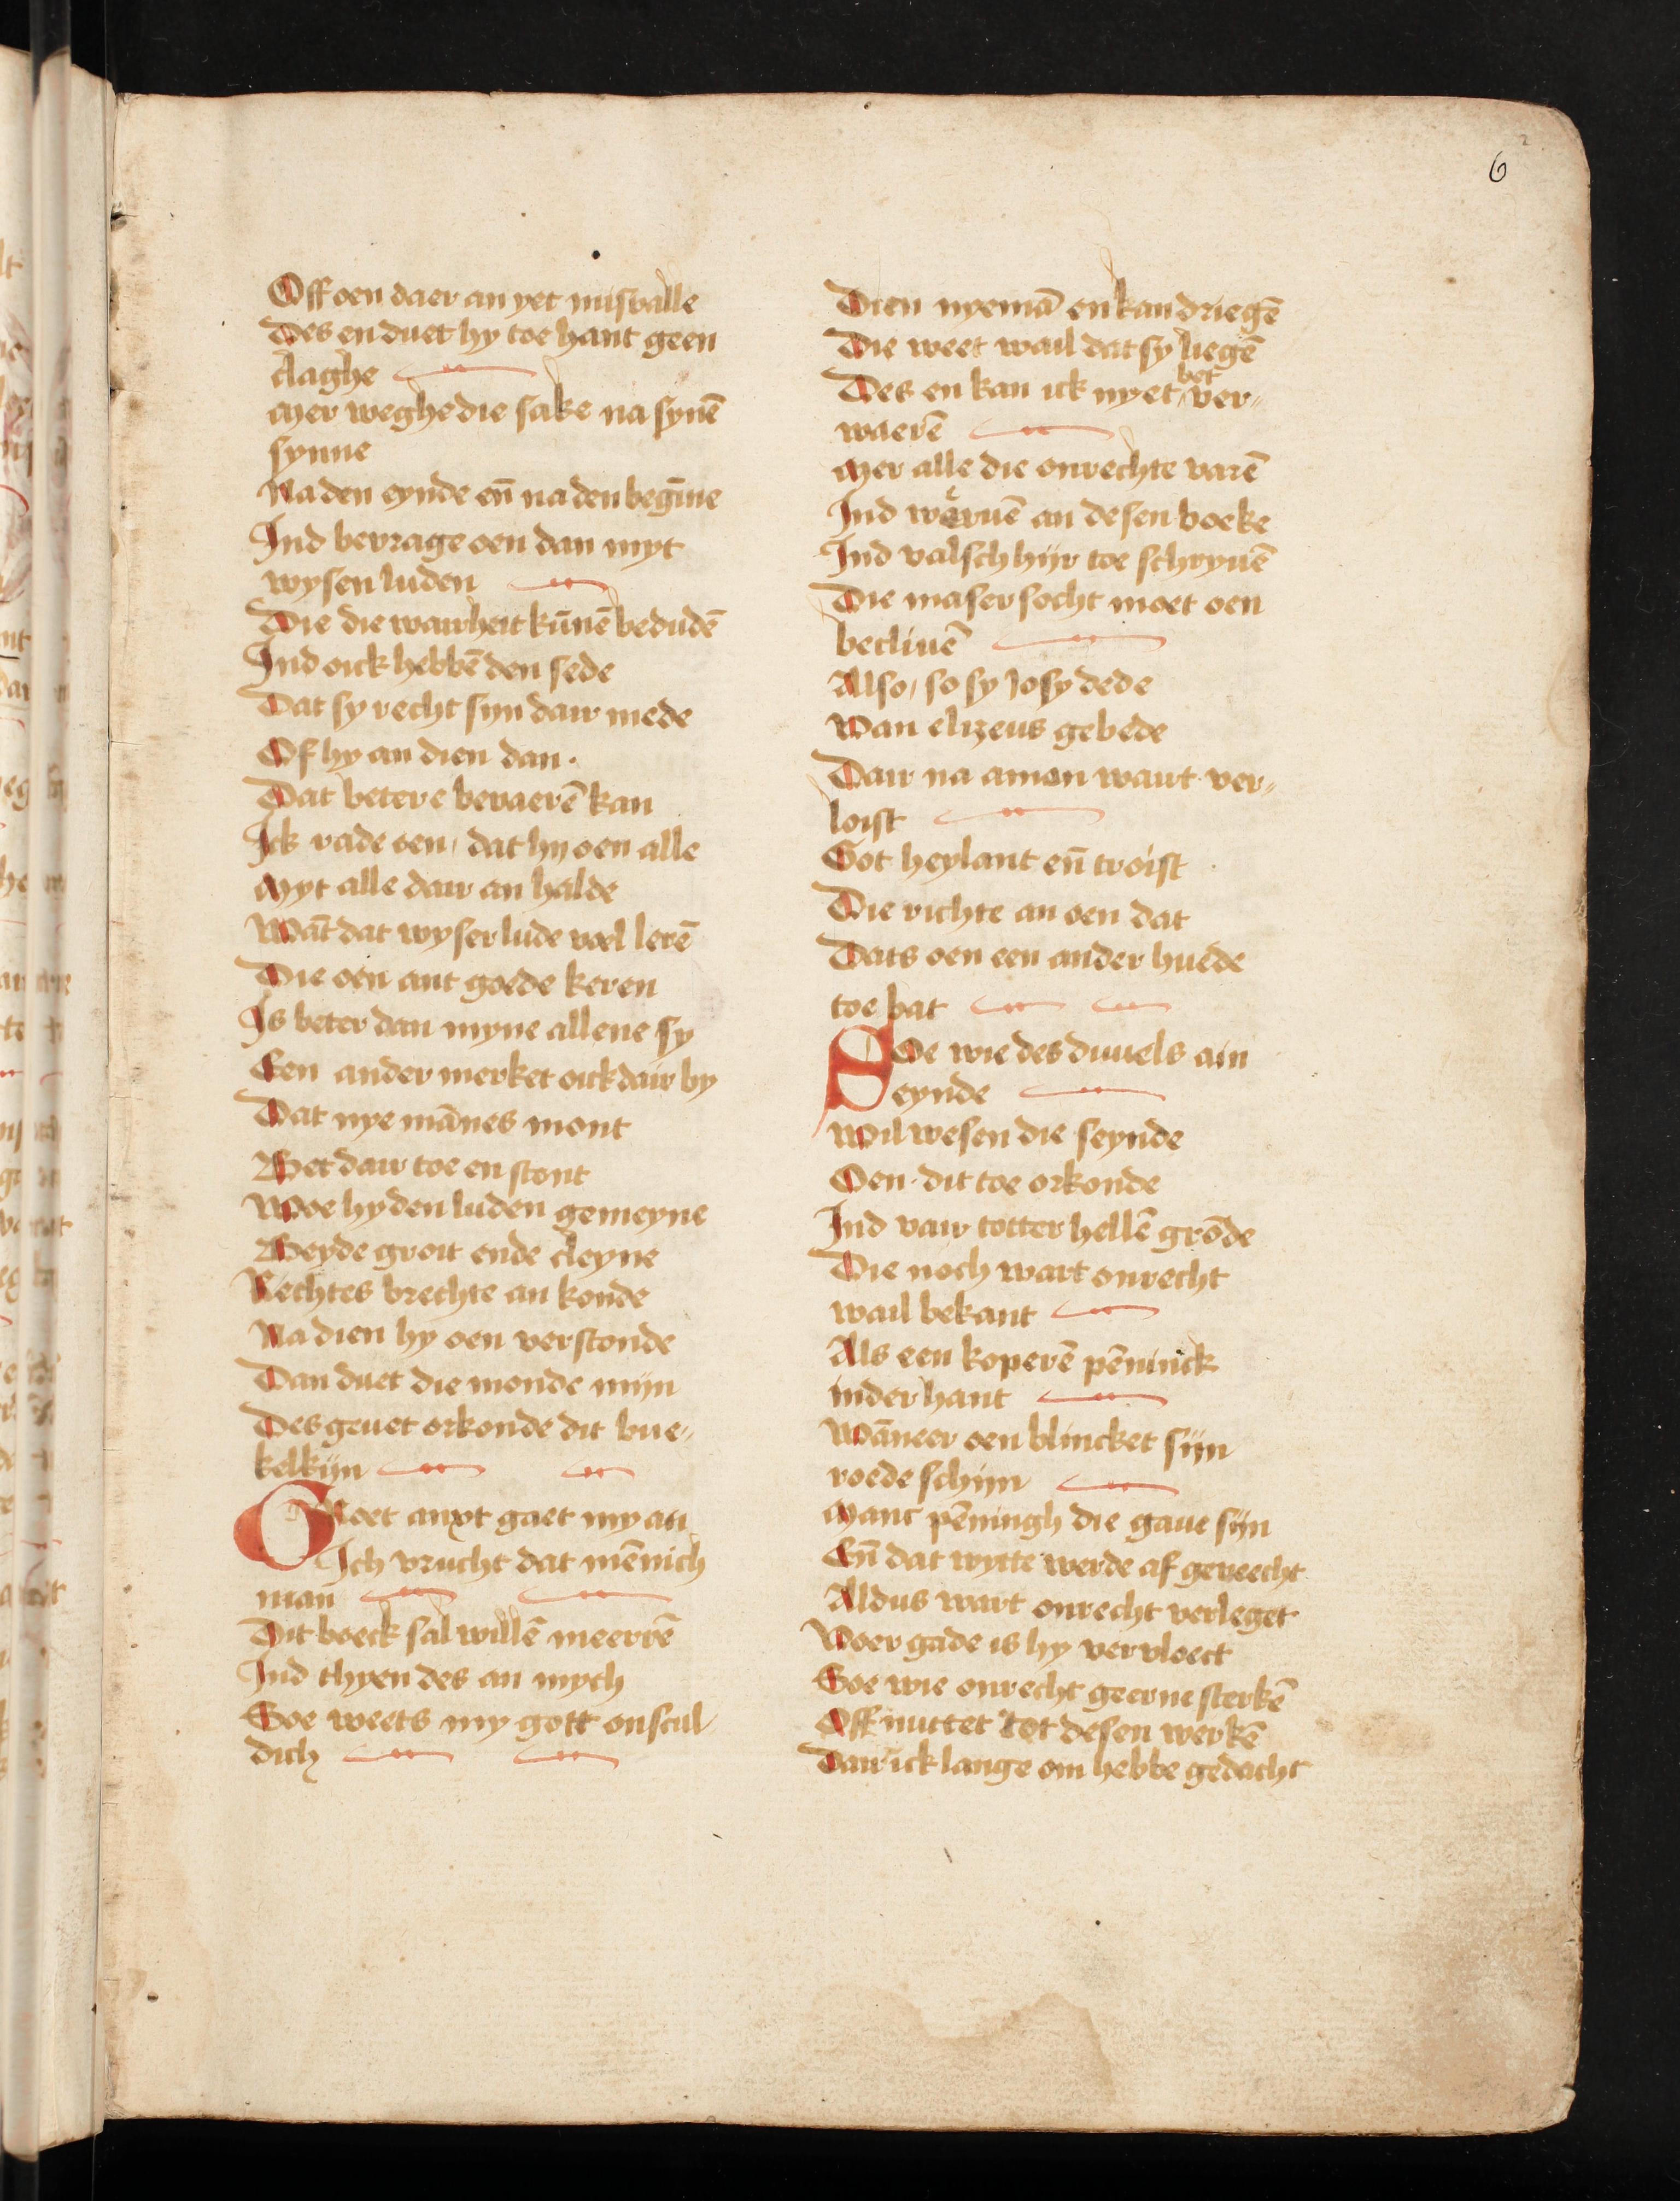 6
Off oen daer an yet misvalle
Des en duet hy toe hant geen
claghe
Mer weghe die sake na synē
synne
Na den eynde en̄ na den begīne
Ind bevrage oen dan myt
wysen luden
Die die wairheit kūnē bedudē
Ind oick hebbē den sede
Dat sy recht syn dair mede
Of hy an dien dan.
Dat betere bevaerē kan
Ick rade oen, dat hy oen alle
Myt alle dair an halde
Wāt dat wyser lude voel lerē
Die oen ant goede keren
Is beter dan myne allene sy
Een ander merket oick dair by
Dat nye mānes mont
Bet dair toe en stont
Woe hy den luden gemeyne
Beyde groit ende cleyne
Rechtes brechte an konde
Na dien hy oen verstonde
Dan duet die monde mijn
Des gevet orkonde dit bue〃
kelkijn
Groet anxt gaet my an
Ich vrucht dat mēnich
man
Dit boeck sal willē meerrē
Ind thyen des an mych
Soe weets my gott onscul〃
dich
Dien nyemā en kan driegē
Die weet wail dat sy liegē
Des en kan ick nyet bet ver〃
waerē
Mer alle die onrechte varē
Ind wervē an desen boeke
Ind valsch hijr toe schryuē
Die maser socht moet oen
becliuē
Also, so sy Josy dede
Wan elizeus gebede
Dair na amon wart ver〃
loist
Got heylant en̄ troist
Die richte an oen dat
Dats oen een ander huede
toe bat
Soe wie des duuels ain
eynde
Wil wesen die seynde
Oen dit toe orkonde
Ind vair totter hellē grōde
Die noch wart onrecht
wail bekant
Als een koperē pēninck
inder hant
Wāneer oen blincket sijn
roede schijn
Manc pēningh die gaue sijn
En̄ dat wytte werde af geveecht
Aldus wart onrecht verleget
Voer gade is hy vervloect
Soe wie onrecht geerne sterkē
Off nuttet tot desen werkē
Dair ick lange om hebbe gedacht